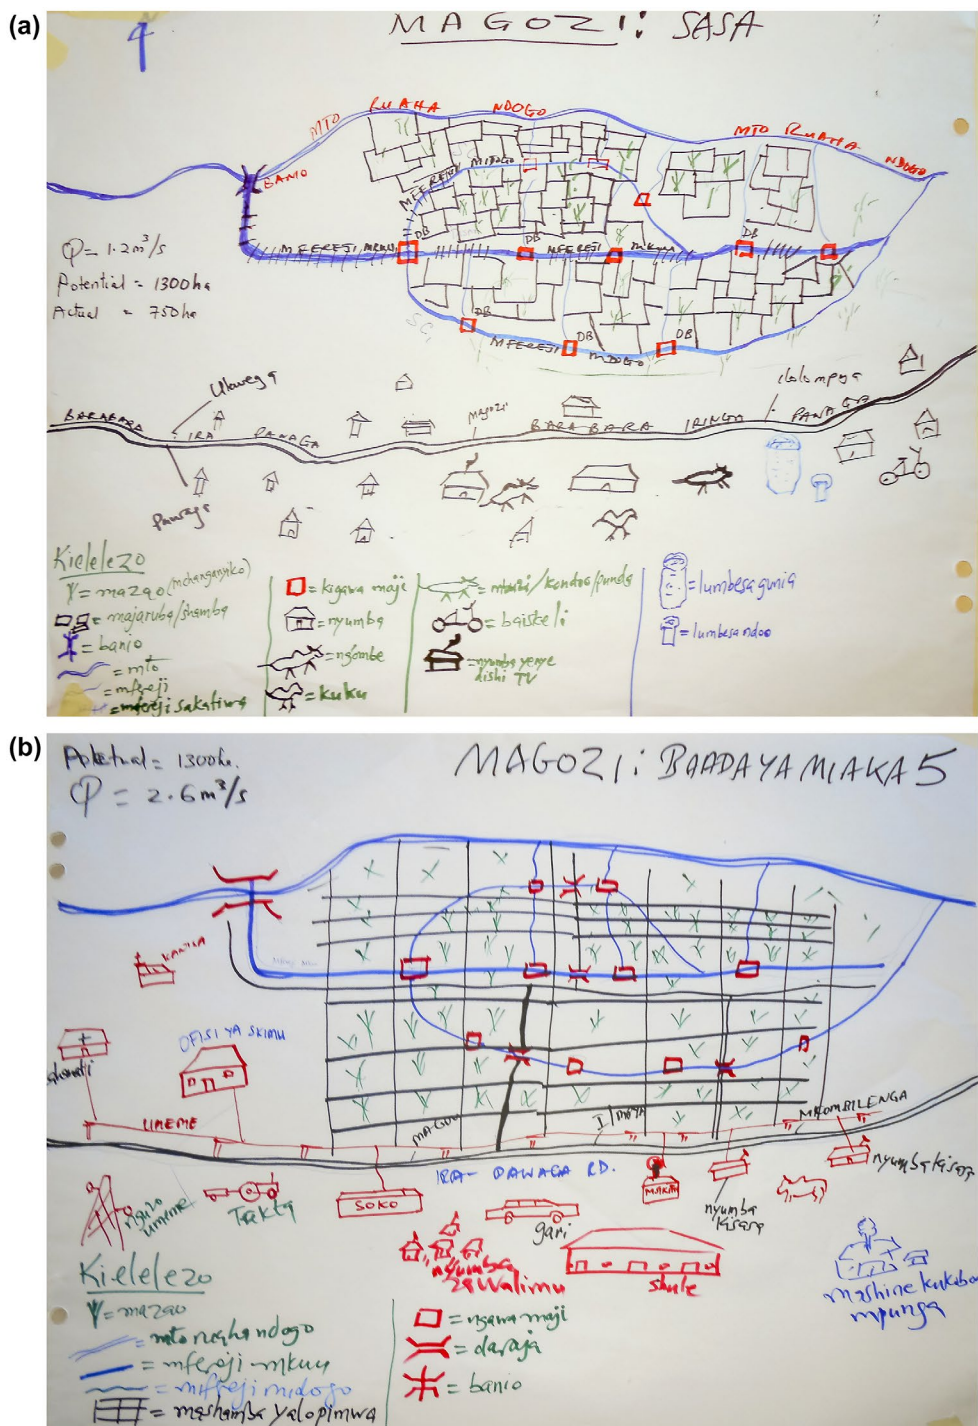 (a)
MAGOZI: SASA
MTO RUAHA NDOGO
MTO RUAHA NDOGO
BANIO
MFEREJI MDOGO
Q = 1.2 m³/s
Potential = 1300ha
Actual = 750ha
DB
MFEREJI MKUU
DB
MFEREJI mkuu
DB
DB
DB
DB
MFEREJI MDOGO
Magozi
BARABARA IRA PANAGA
BARABARA IRINGA PANAGA
Pawaga
Kielelezo
= mazao (mchanganyiko)
= majaruba/shamba
= banio
= mto
= mfereji
= mfereji sakafiwa
= kigawa maji
= nyumba
= ngombe
= kuku
= mbuzi/kondoo/punda
= baiskeli
= nyumba yenye
dishi TV
= lumbesa gunia
= lumbesa ndoo
(b)
Potential = 1300ha.
Q = 2.6 m³/s
MAGOZI: BAADA YA MIAKA 5
KANISA
OFISI YA SKIMU
UMEME
MAGOZI
MKOMBILENGA
IRA - PAWAGA RD.
nguzo
umeme
Trekta
SOKO
gari
nyumba kisasa
nyumba
kisasa
nyumba
za walimu
shule
mashine kukoboa
mpunga
Kielelezo
= mazao
= mto ruaha ndogo
= mfereji mkuu
= mifereji midogo
= mashamba yalopimwa
= ngawa maji
= daraja
= banio